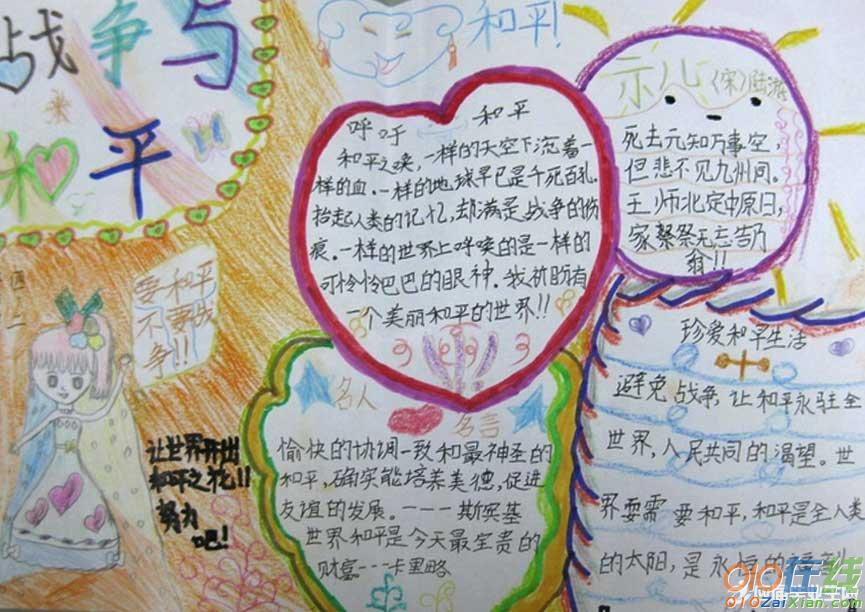 战争与
和平
和平!
四.二
要和平
不要战
争!!
让世界开出
和平之花!!
努力
吧!
呼吁 和平
和平之唤，一样的天空下流着一
样的血。一样的地球早已是千死百孔.
抬起人类的记忆,却满是战争的伤
痕。一样的世界上呼唤的是一样的
可怜怜巴巴的眼神。我祈盼有
一个美丽和平的世界!!
示儿〈宋〉陆游
死去元知万事空，
但悲不见九州间。
王师北定中原日，
家祭祭无忘告乃
翁!!
名人
名言
愉快的协调一致和最神圣的
和平，确实能培养美德，促进
友谊的发展。----斯宾基
世界和平是今天最宝贵的
财富---卡里略
珍爱和平生活
避免战争,让和平永驻全
世界，人民共同的渴望。世
界要需要和平，和平是全人类
的太阳，是永恒的
910在线
910ZaiXian.com